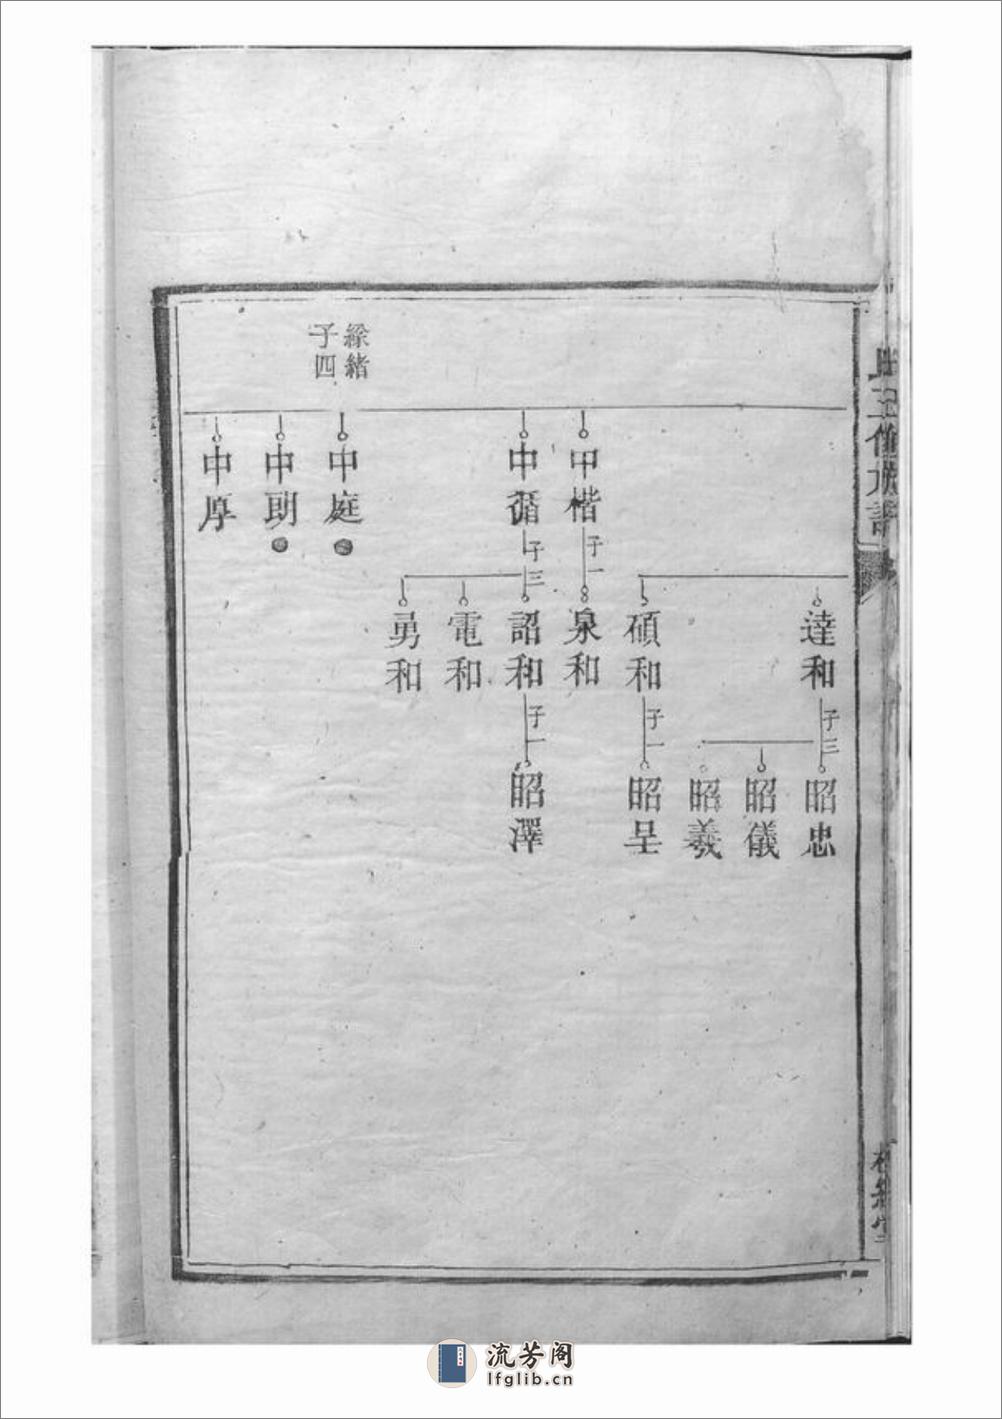 達和
子三
昭忠
昭儀
昭羲
碩和
子一
昭呈
中楷
子一
泉和
中循
子三
詔和
子一
昭澤
電和
勇和
綵緒
子四
中庭
中朗
中厚
流芳阁
lfglib.cn